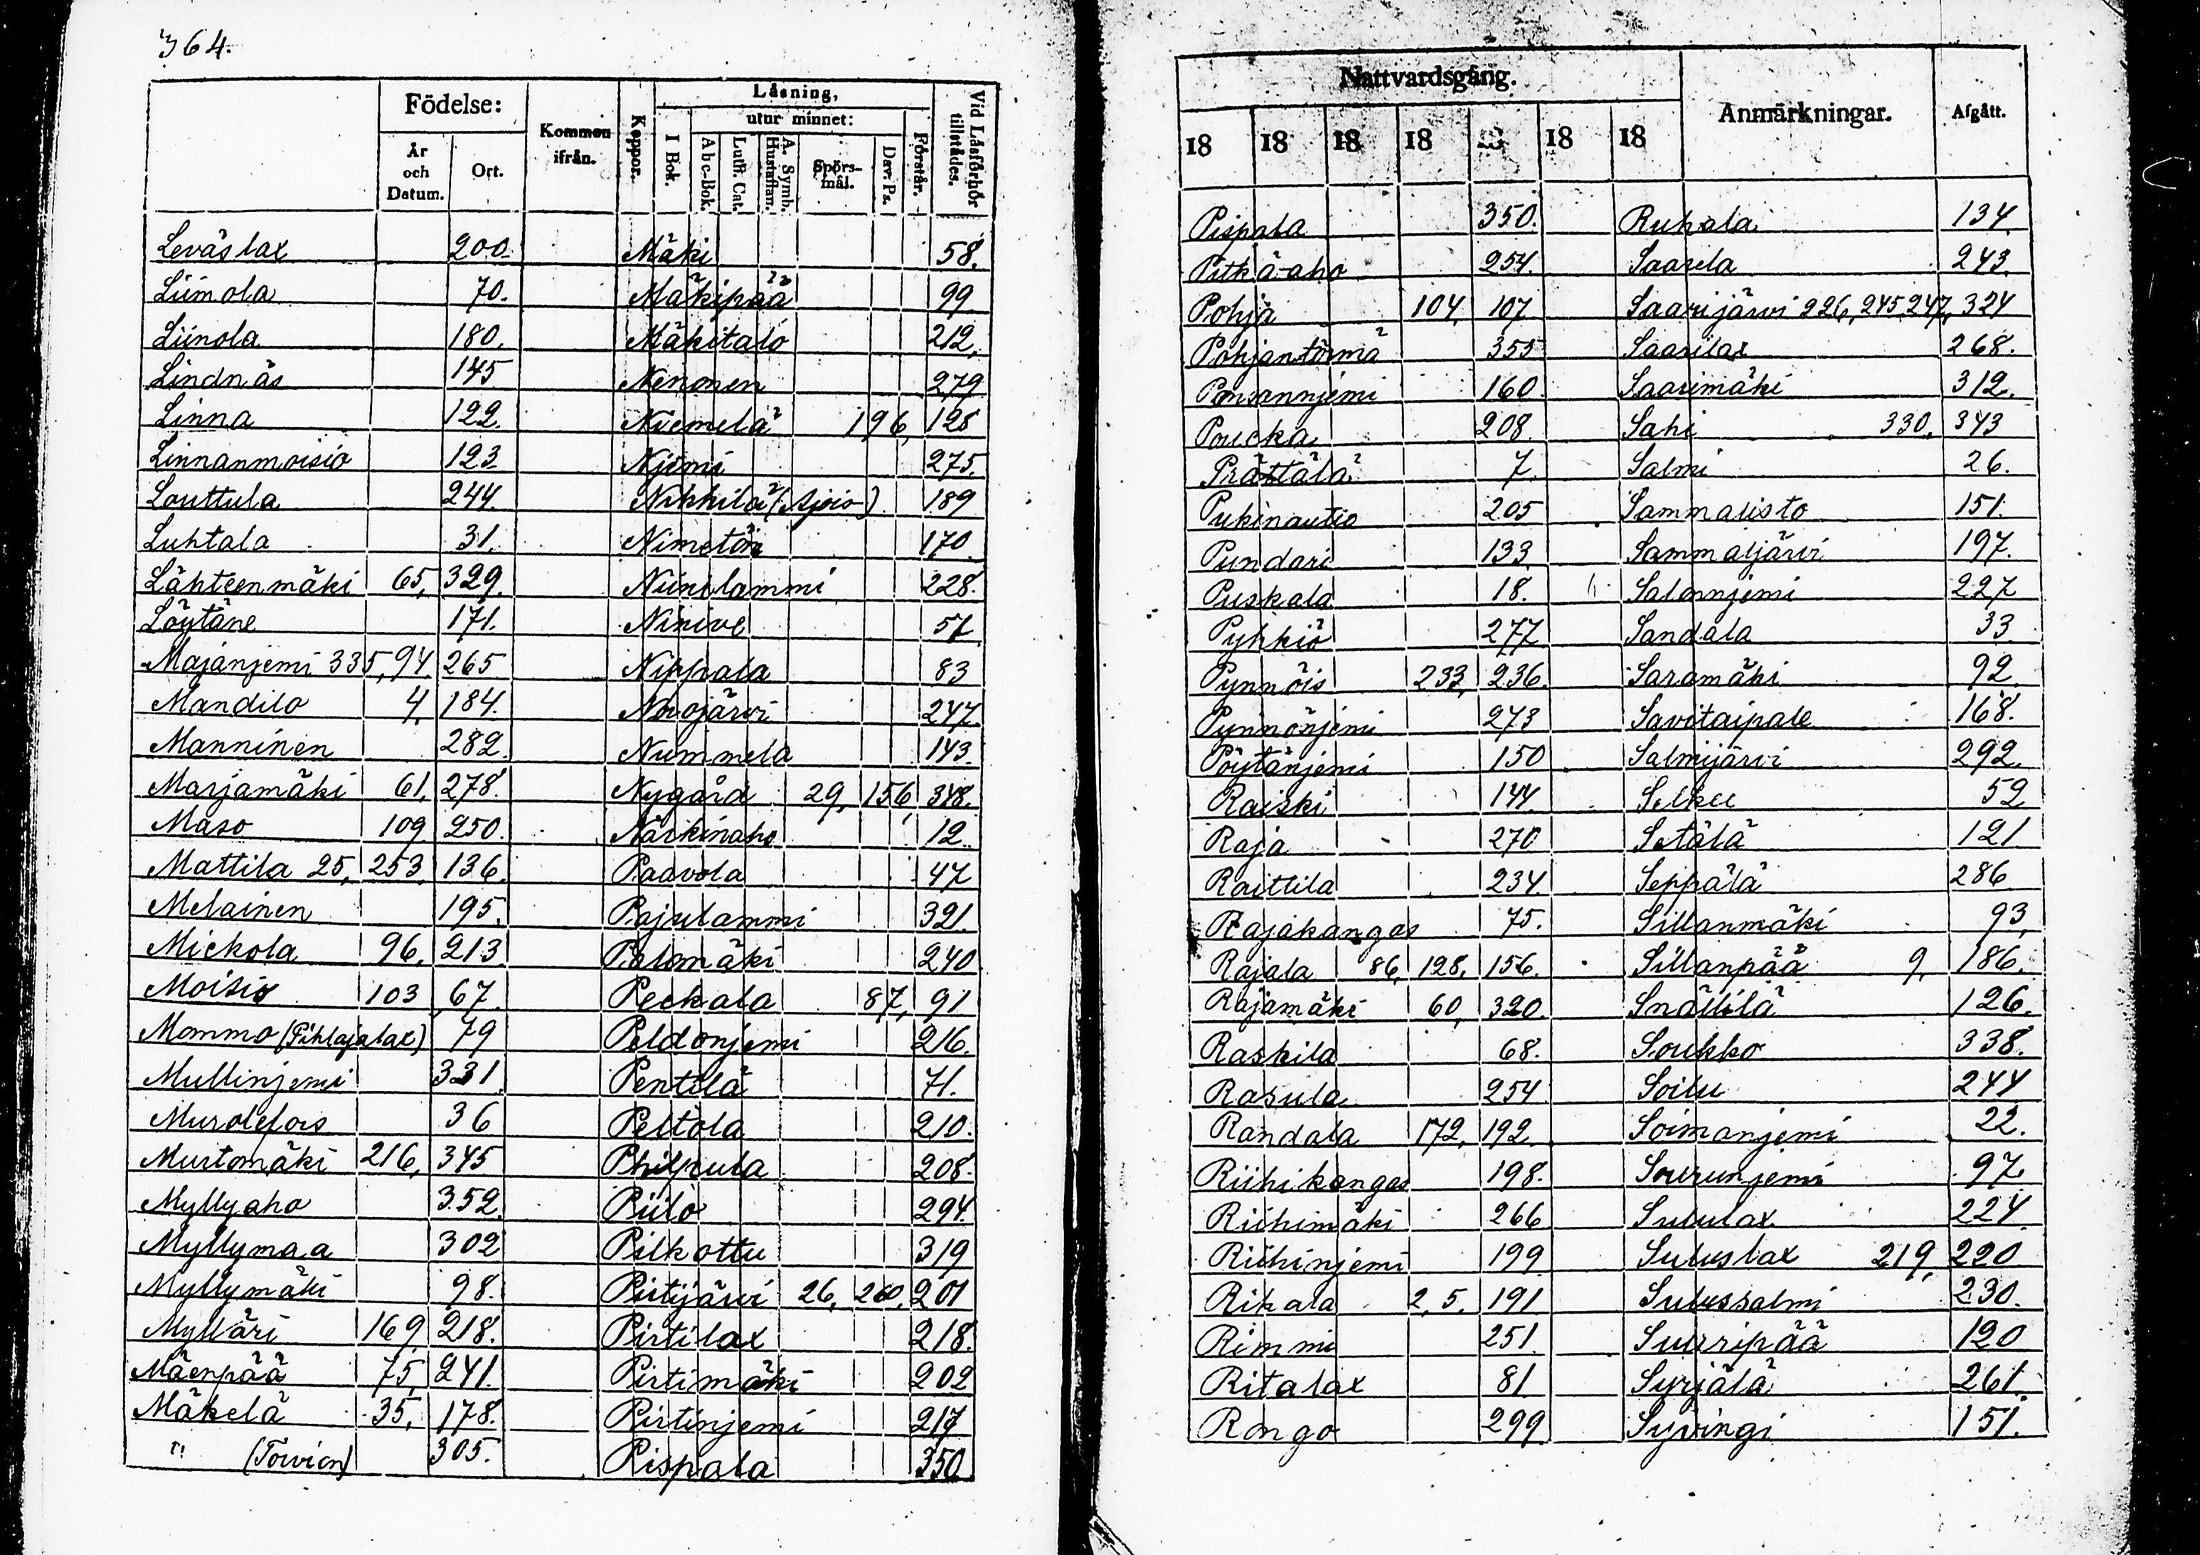 364.
Födelse:
År och Datum.
Ort.
Kommen ifrån.
Koppor.
Läsning,
utur minnet:
I Bok.
Abc-Bok.
Luth. Cat.
A. Symb. Hustaflan.
Spörs-mål.
Dav. Ps.
Förstår.
Vid Läsförhör tillstädes.
Leväslax 200.
Liimola 70.
Liinola 180.
Lindnäs 145
Linna 122.
Linnanmoisio 123
Louttula 244.
Luhtala 31.
Lähteenmäki 65, 329.
Löytäne 171.
Majanjemi 335, 94, 265
Mandilo 4, 184.
Manninen 282.
Marjamäki 61, 278.
Maso 109 250.
Mattila 25, 253, 136.
Melainen 195.
Mickola 96, 213
Moisio 103, 67.
Mommo (Pihlajalax) 79
Mullinjemi 331.
Murolefors 36
Murtomäki 216, 345
Myllyaho 352.
Myllymaa 302
Myllymäki 98.
Mylläri 169, 218.
Mäenpää 75, 241.
Mäkelä 35, 178.
" (Torvion) 305.
Mäki 58.
Mäkipää 99
Mäkitalo 212.
Nenonen 279
Niemelä 196, 128
Njemi 275.
Nikkilä (Ajoio) 189
Nimetön 170
Niinilammi 228.
Ninive 51
Nippala 83
Nuojärvi 247.
Nummela 143.
Nygård 29, 156, 348.
Närkinaho 12.
Paavola 47
Pajulammi 321.
Palomäki 240
Peckala 87, 91
Peldonjemi 216.
Pentilä 71.
Peltola 210.
Philpula 208.
Piilo 294.
Pilkottu 319
Pirtijärvi 26, 260, 201
Pirtilax 218.
Pirtimäki 202
Pirtinjemi 217
Pispala 350
Nattvardsgång.
Anmärkningar.
Afgått.
18 18 18 18 18 18 18
Pispala 350.
Pitkä-aho 254.
Pohja 104, 107
Pohjantörmä 355
Ponsannjemi 160.
Poucka 208.
Prättälä 7.
Pukinautio 205
Pundari 133
Puskala 18.
Pyhkiö 277
Pynnöis 233, 236.
Pynnönjemi 273
Pöytänjemi 150
Raiski 144
Raja 270
Raittila 234
Rajakangas 75.
Rajala 86, 128, 156.
Rajamäki 60, 320.
Raskila 68.
Rasula 254
Randala 172, 192.
Riihikangas 198.
Riihimäki 266
Riihinjemi 199
Rikala 2, 5, 191
Rimmi 251.
Ritalax 81
Rongo 299
Ruhala 134.
Saarela 243.
Saarijärvi 226, 245, 247, 324
Saarilax 268.
Saarimäki 312.
Sahi 330, 343
Salmi 26.
Sammalisto 151.
Sammaljärvi 197.
Salonnjemi 227
Sandala 33
Saramäki 92
Savitaipale 168.
Salmijärvi 292.
Selkee 52
Setälä 121
Seppälä 286
Sillanmäki 93,
Sillanpää 9, 186.
Snällilä 126.
Soukko 338.
Soilu 244
Soimanjemi 22.
Sourunjemi 97
Sululax 224
Suluslax 219, 220
Sulussalmi 230.
Surripää 120
Syrjälä 261.
Syvingi 151.